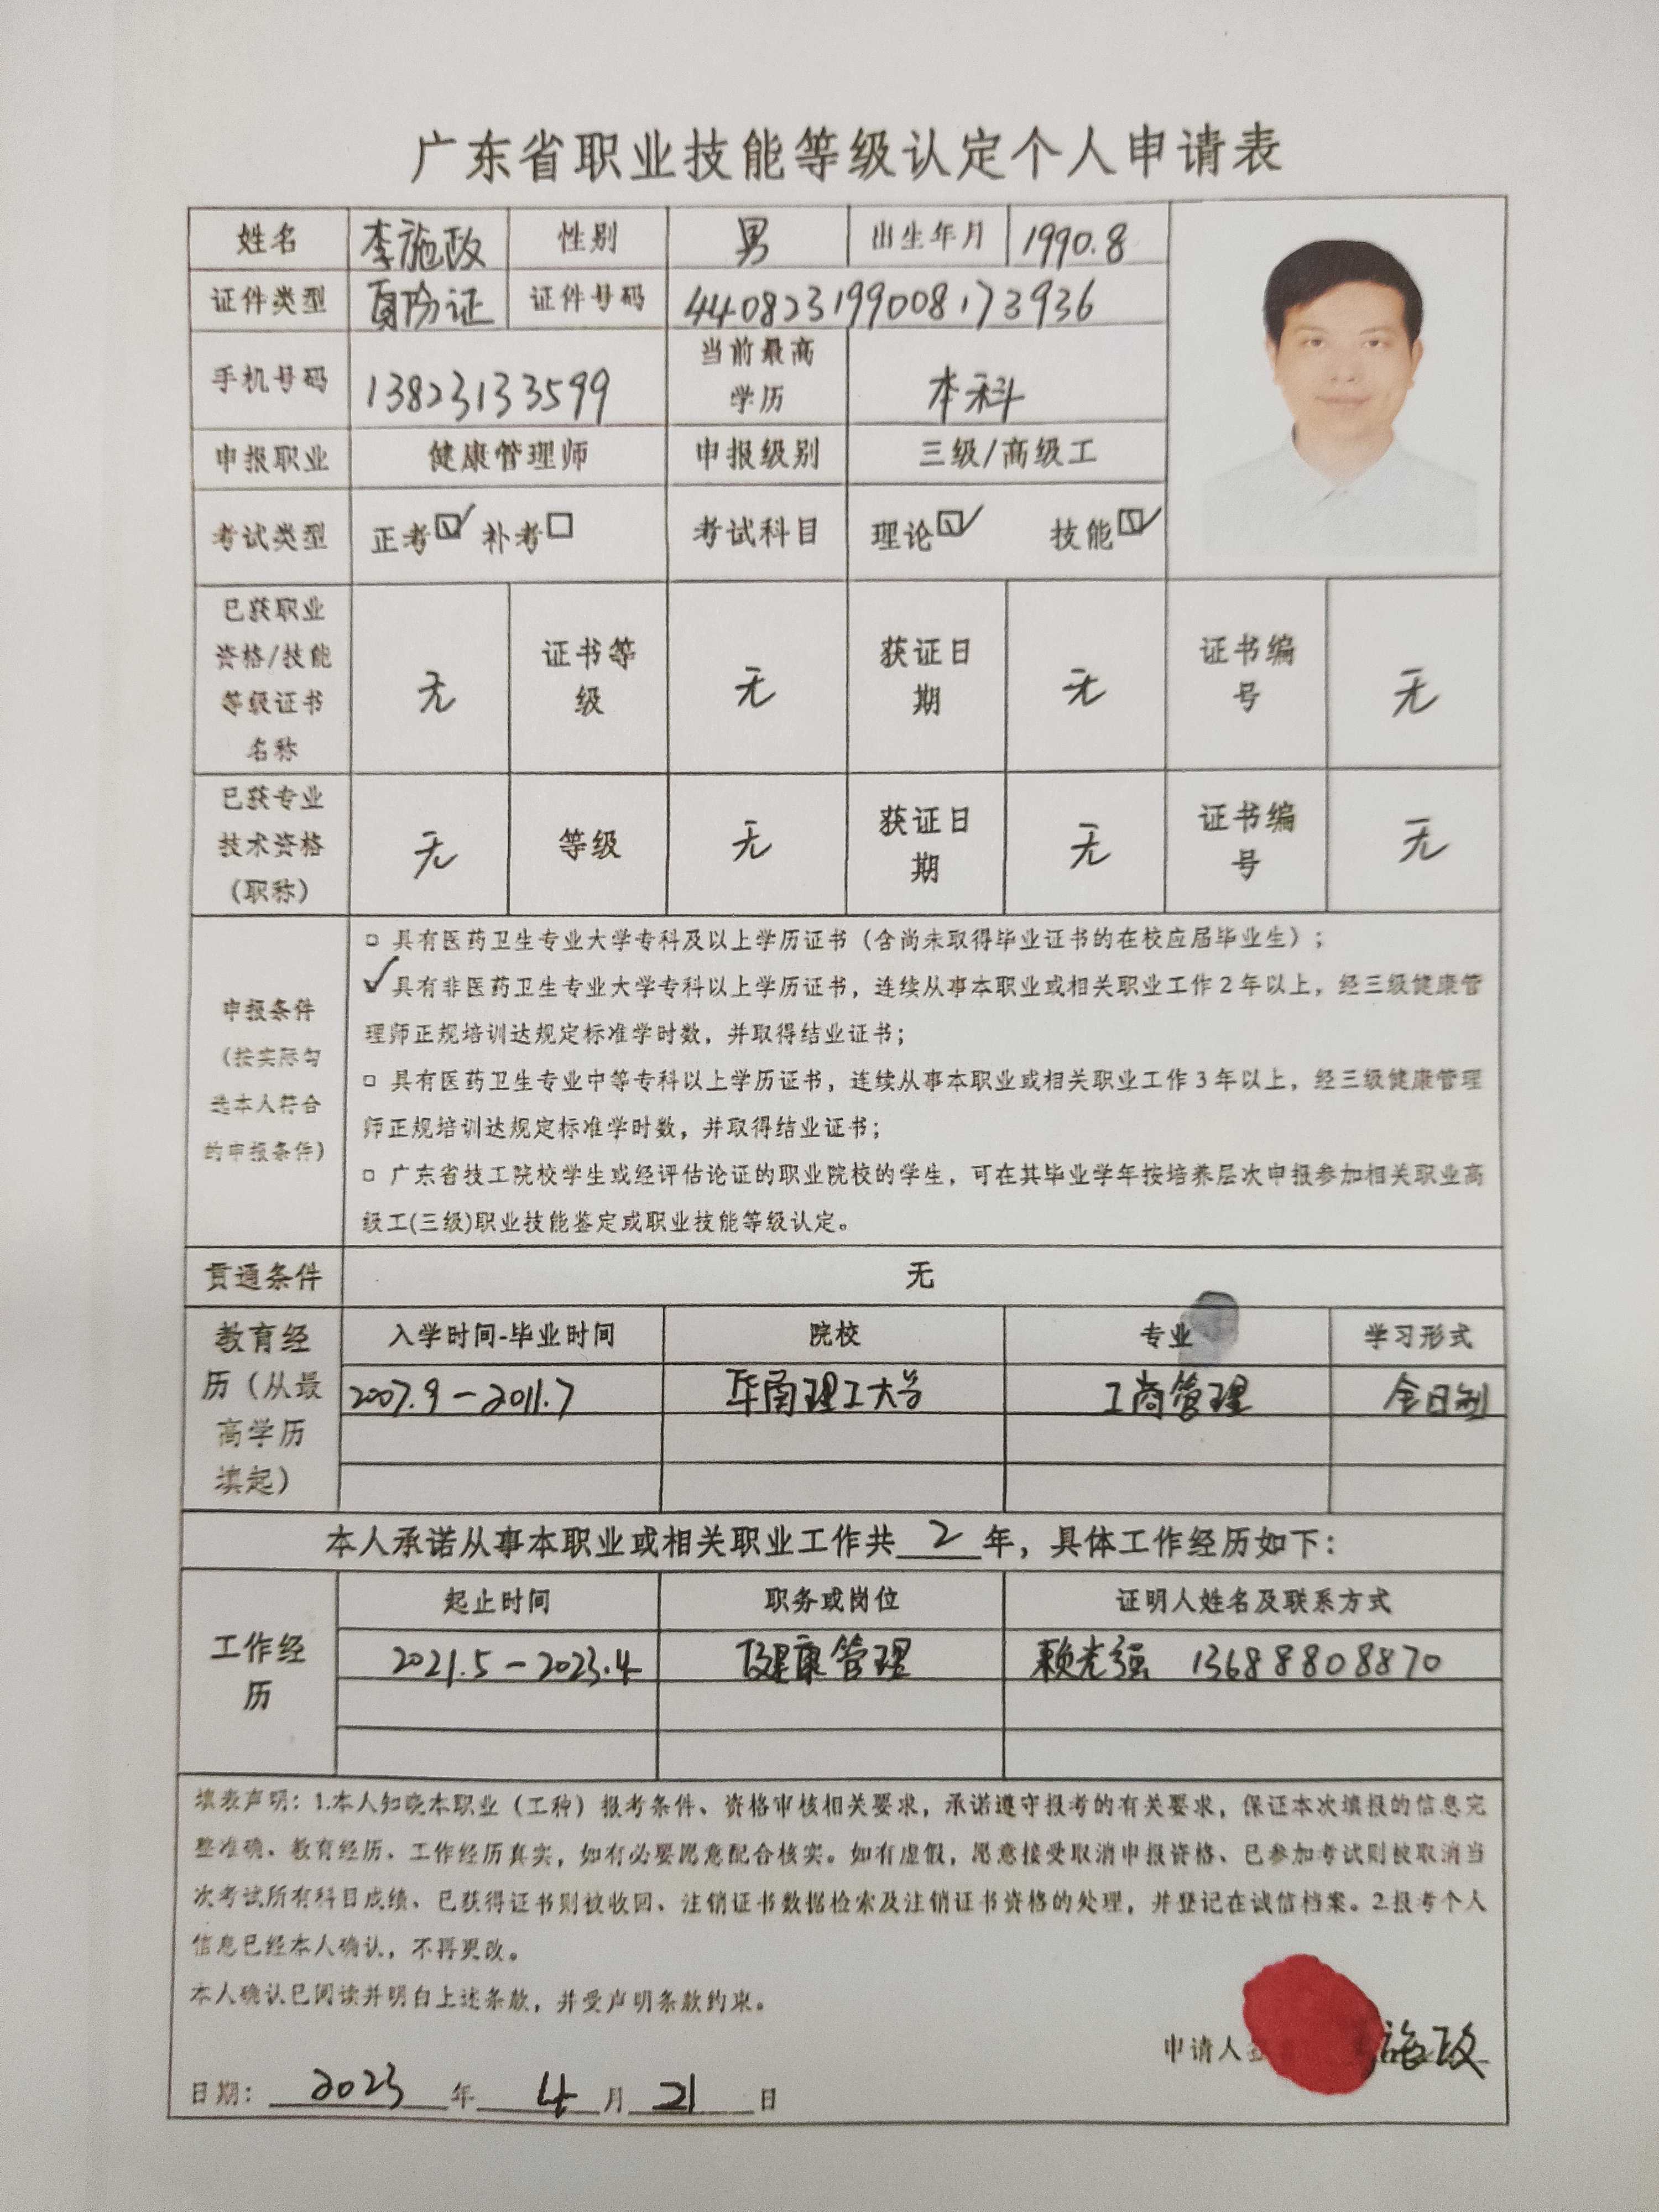 广东省职业技能等级认定个人申请表
姓名 李施政 性别 男 出生年月 1990.8
证件类型 身份证 证件号码 440823199008173936
手机号码 13823133599 当前最高学历 本科
申报职业 健康管理师 申报级别 三级/高级工
考试类型 正考☑ 补考☐ 考试科目 理论☑ 技能☑
已获职业资格/技能等级证书名称 无 证书等级 无 获证日期 无 证书编号 无
已获专业技术资格（职称） 无 等级 无 获证日期 无 证书编号 无
申报条件（按实际勾选本人符合的申报条件）
□ 具有医药卫生专业大学专科及以上学历证书（含尚未取得毕业证书的在校应届毕业生）；
✓具有非医药卫生专业大学专科以上学历证书，连续从事本职业或相关职业工作2年以上，经三级健康管
理师正规培训达规定标准学时数，并取得结业证书；
□ 具有医药卫生专业中等专科以上学历证书，连续从事本职业或相关职业工作3年以上，经三级健康管理
师正规培训达规定标准学时数，并取得结业证书；
□ 广东省技工院校学生或经评估论证的职业院校的学生，可在其毕业学年按培养层次申报参加相关职业高
级工(三级)职业技能鉴定或职业技能等级认定。
贯通条件 无
教育经历（从最高学历填起） 入学时间-毕业时间 院校 专业 学习形式
2007.9－2011.7 华南理工大学 工商管理 全日制
本人承诺从事本职业或相关职业工作共 2 年，具体工作经历如下：
工作经历 起止时间 职务或岗位 证明人姓名及联系方式
2021.5－2023.4 健康管理 赖光强 13688808870
填表声明：1.本人知晓本职业（工种）报考条件、资格审核相关要求，承诺遵守报考的有关要求，保证本次填报的信息完
整准确、教育经历、工作经历真实，如有必要愿意配合核实。如有虚假，愿意接受取消申报资格、已参加考试则被取消当
次考试所有科目成绩、已获得证书则被收回、注销证书数据检索及注销证书资格的处理，并登记在诚信档案。2.报考个人
信息已经本人确认，不再更改。
本人确认已阅读并明白上述条款，并受声明条款约束。
申请人 施政
日期： 2023 年 4 月 21 日